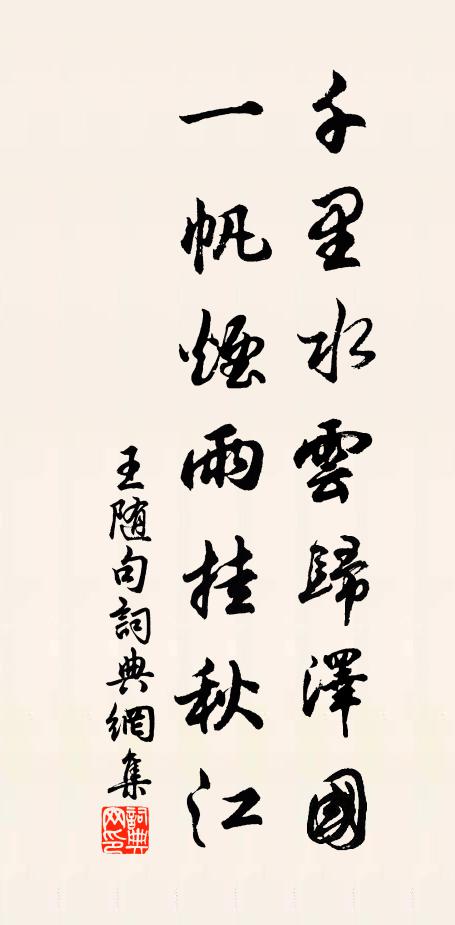 千里水雲歸澤國
一帆煙雨挂秋江
王随句詞典網集
詞典網印